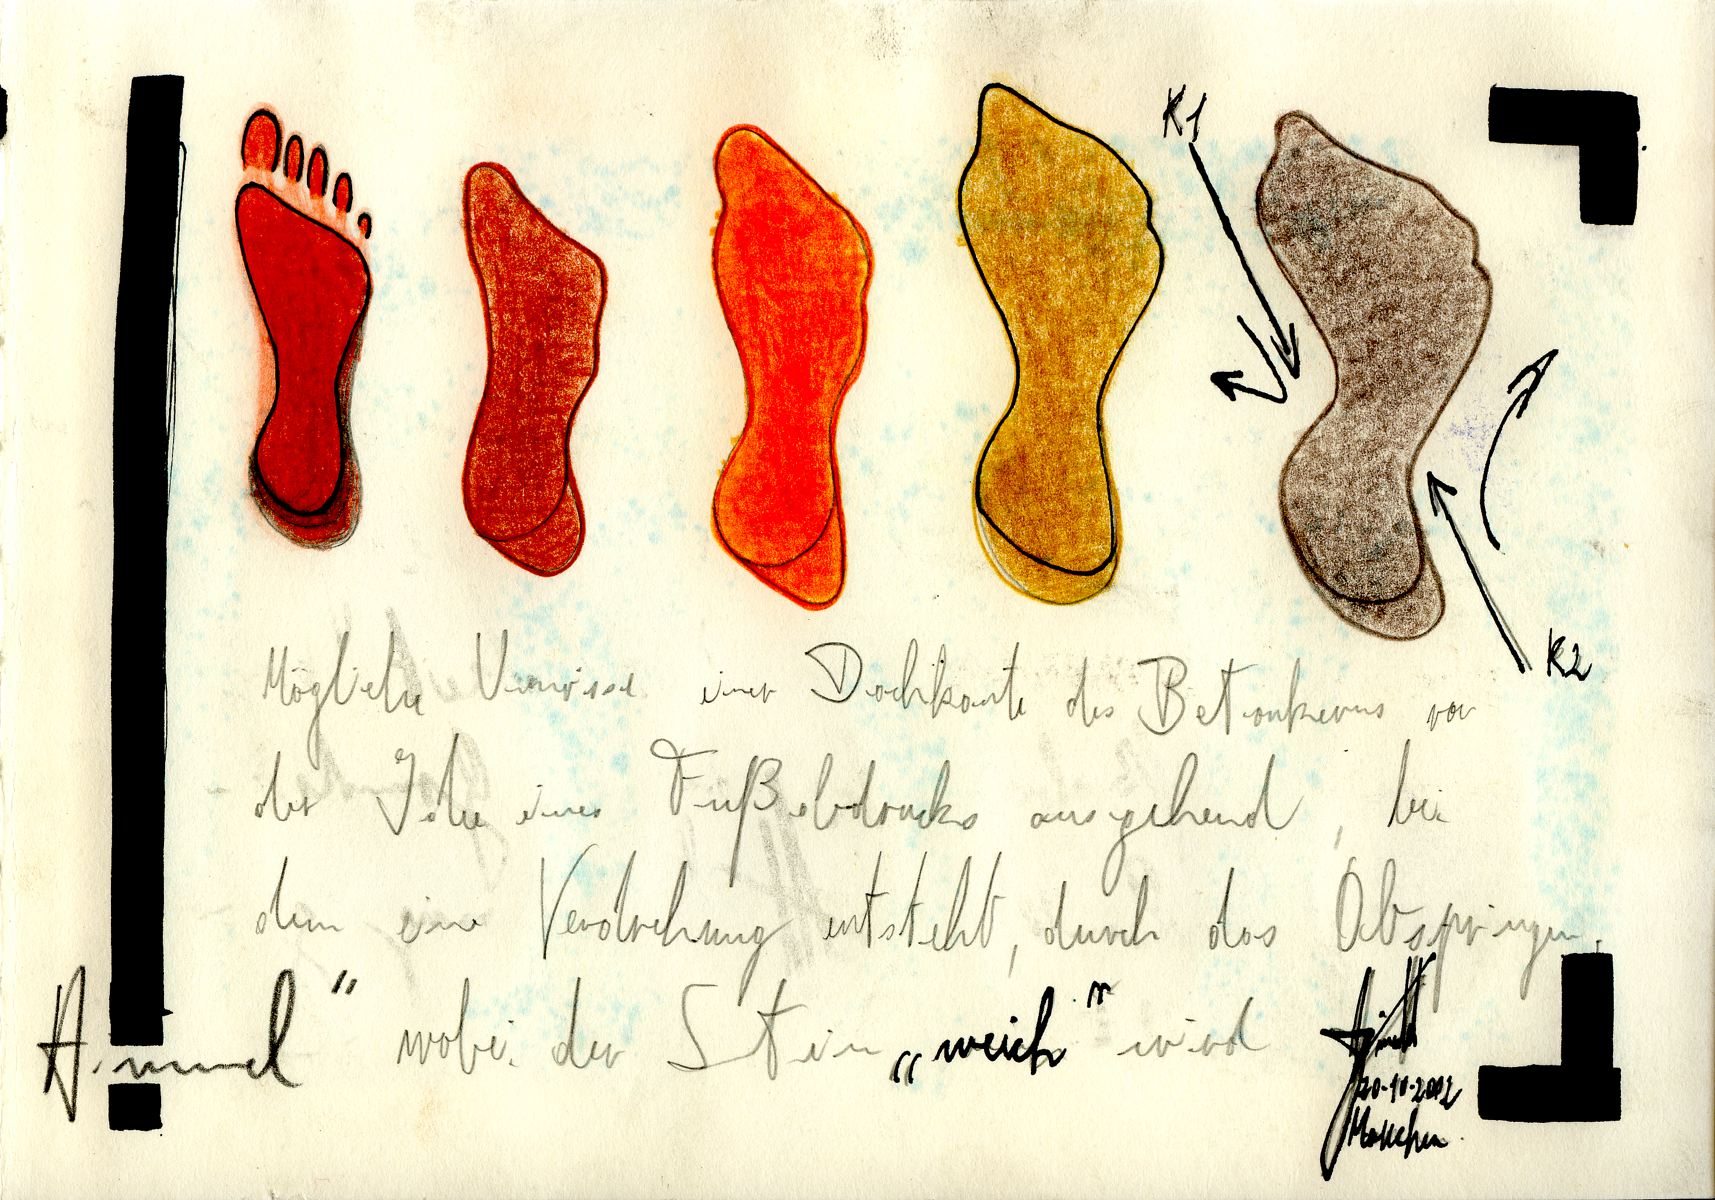 K1
K2
Mögliche Umrisse einer Dachkante des Betonkerns von
der Idee eines Fußabdrucks ausgehend, bei
dem eine Verdrehung entsteht, durch das Abspringen,
Himmel" wobei der Stein „weich" wird
20.10.2012
München